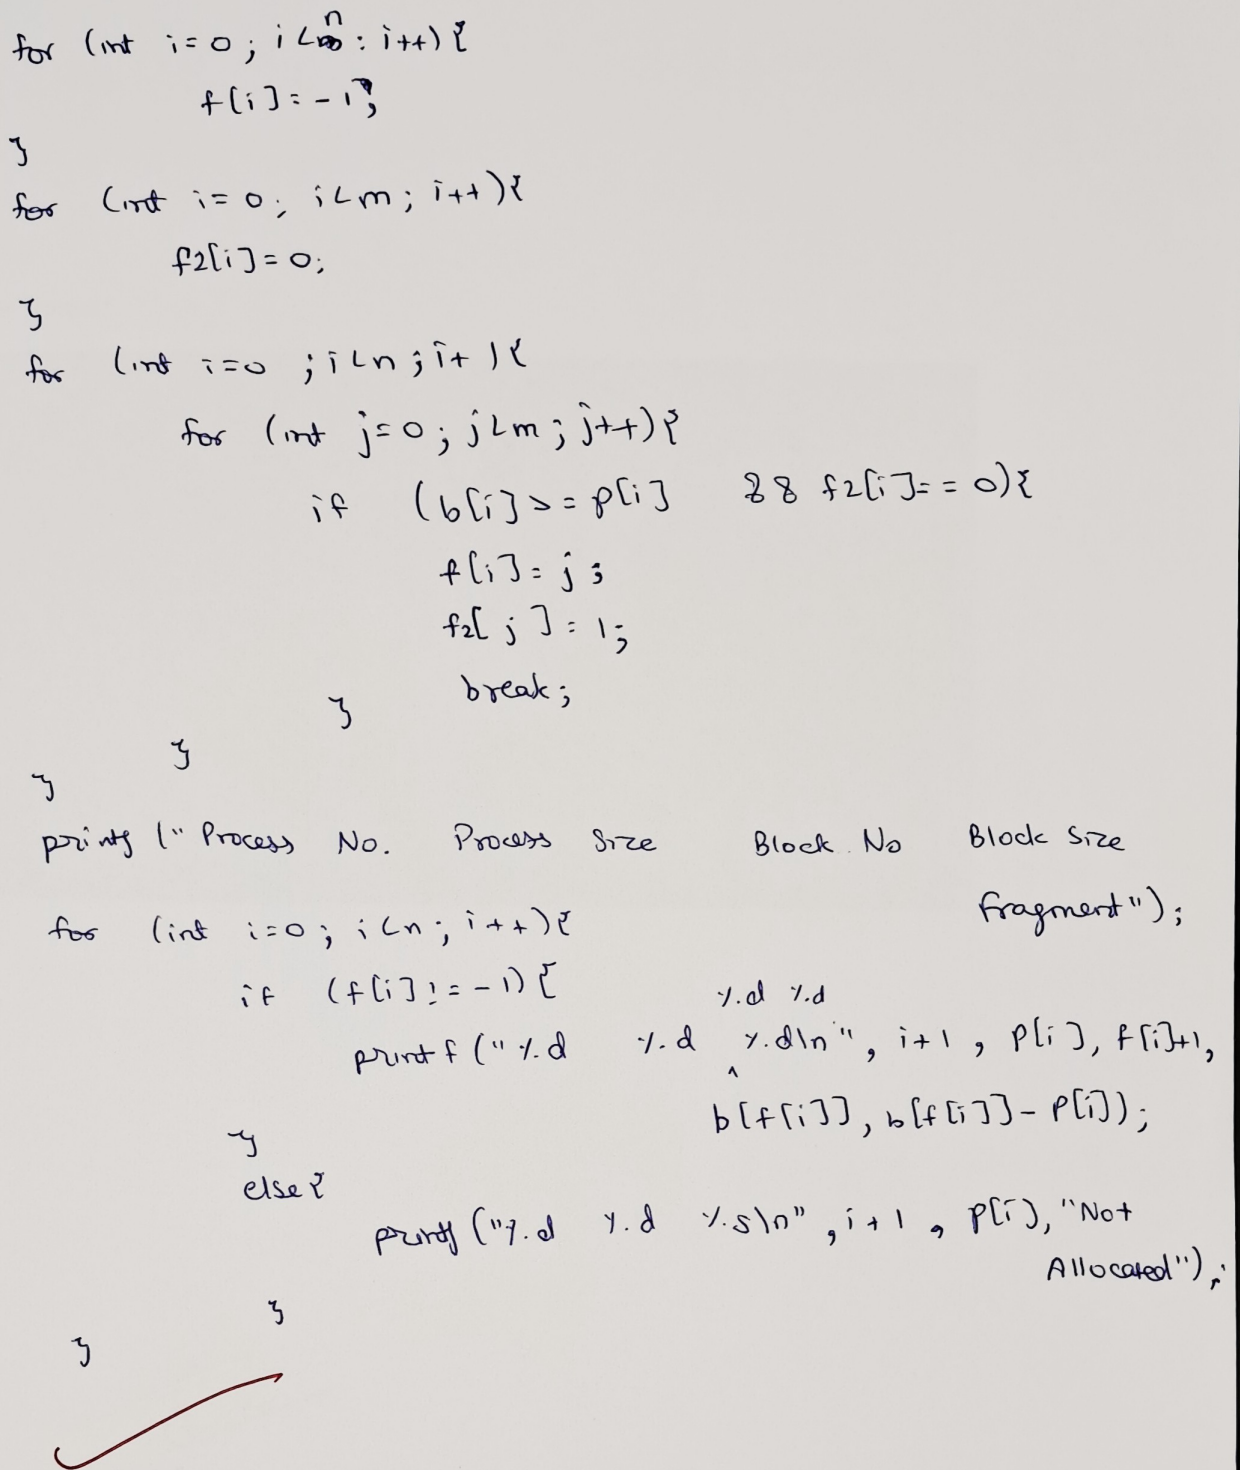 for (int i=0; i<n: i++){
f[i]=-1;
}
for (int i=0; i<m; i++){
f2[i]=0;
}
for (int i=0 ; i<n; i+){
for (int j=0; j<m; j++){
if (b[i]>=p[i] && f2[i]==0){
f[i]=j;
f2[j]=1;
break;
}
}
}
printf (" Process No. Process Size Block No Block Size
Fragment");
for (int i=0; i<n; i++){
if (f[i]!=-1){
printf ("%d %d %d %d %d\n", i+1, p[i], f[i]+1,
b[f[i]], b[f[i]]-p[i]);
}
else{
printf ("%d %d %s\n", i+1, p[i], "Not
Allocated");
}
}